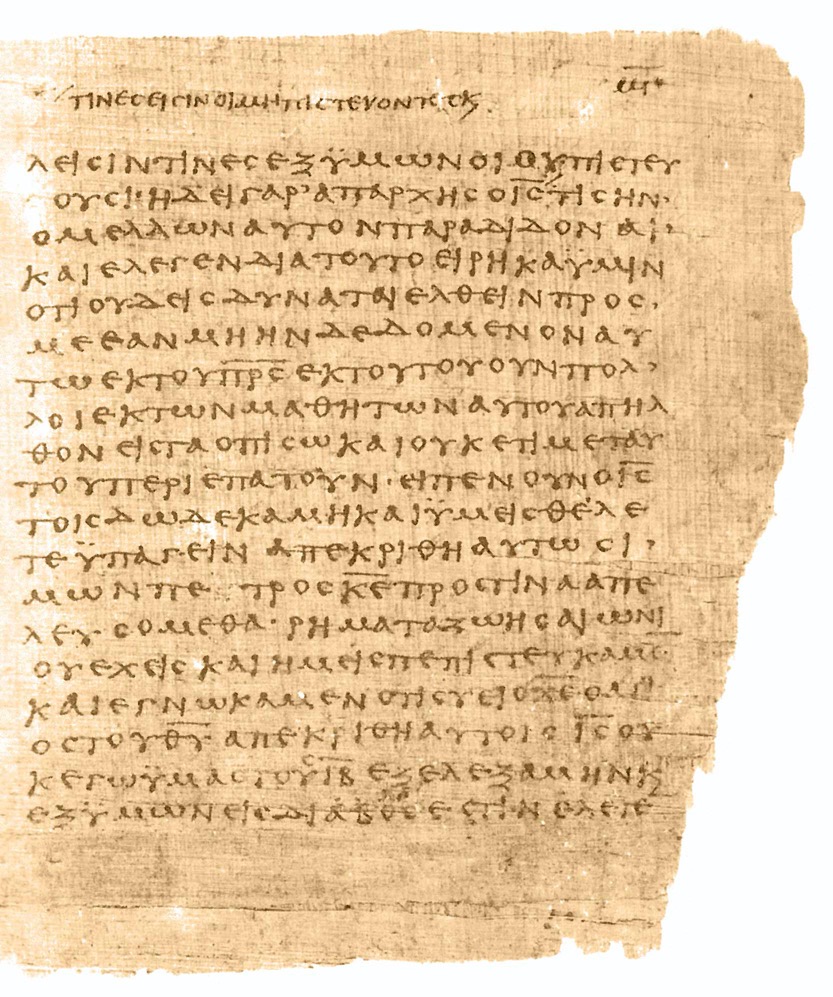 ΤΙΝΕCΕΙCΙΝΟΙΜΗΠΙCΤΕΥΟΝΤΕC
ΛΕΙCΙΝΤΙΝΕCΕΞΫΜΩΝΟΙΟΥΠΙCΤΕΥ
ΟΥCΙ·ΗΔΕΙΓΑΡ’ΑΠΑΡΧΗCΟΙ̅C̅ΤΙCΗΝ·
ΟΜΕΛΛΩΝΑΥΤΟΝΠΑΡΑΔΙΔΟΝΑΙ·
ΚΑΙΕΛΕΓΕΝΔΙΑΤΟΥΤΟΕΙΡΗΚΑΫΜΙΝ
ΟΤΙΟΥΔΕΙCΔΥΝΑΤΑΙΕΛΘΕΙΝΠΡΟC’
ΜΕΕΑΝΜΗΗΝΔΕΔΟΜΕΝΟΝΑΥ
ΤΩΕΚΤΟΥΠ̅Ρ̅C̅ΕΚΤΟΥΤΟΥΟΥΝΠΟΛ’
ΛΟΙΕΚΤΩΝΜΑΘΗΤΩΝΑΥΤΟΥΑΠΗΛ
ΘΟΝΕΙCΤΑΟΠΙCΩΚΑΙΟΥΚΕΤΙΜΕΤΑΥ
ΤΟΥΠΕΡΙΕΠΑΤΟΥΝ·ΕΙΠΕΝΟΥΝΟΙ̅C̅
ΤΟΙCΔΩΔΕΚΑΜΗΚΑΙΫΜΕΙCΘΕΛΕ
ΤΕΫΠΑΓΕΙΝ ΑΠΕΚΡΙΘΗΑΥΤΩCΙ’
ΜΩΝΠΕ ΤΡΟCΚ̅Ε̅ΠΡΟCΤΙΝΑΑΠΕ
ΛΕΥCΟΜΕΘΑ·ΡΗΜΑΤΑΖΩΗCΑΙΩΝΙ
ΟΥΕΧΕΙCΚΑΙΗΜΕΙCΠΕΠΙCΤΕΥΚΑΜΕ
ΚΑΙΕΓΝΩΚΑΜΕΝΟΤΙCΥΕΙΟΧ̅C̅ΟΑΓΙ
ΟCΤΟΥΘ̅Υ̅ΑΠΕΚΡΙΘΗΑΥΤΟΙCΙ̅C̅ΟΥ
ΚΕΓΩΫΜΑCΤΟΥCΙ̅Β̅ΕΞΕΛΕΞΑΜΗΝΚ
ΕΞΫΜΩΝΕΙCΔΙΑΒΟCΕCΤΙΝΕΛΕΓΕ